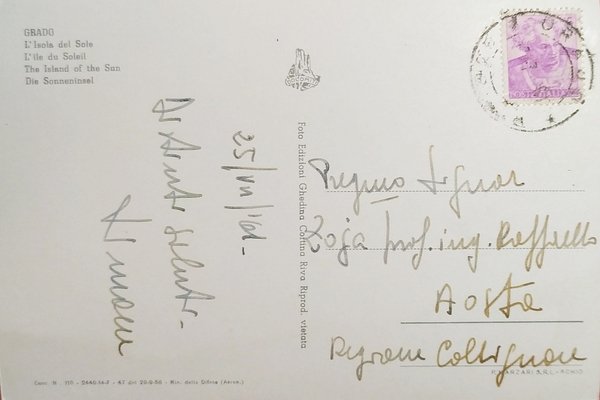 GRADO
L'Isola del Sole
L'île du Soleil
The Island of the Sun
Die Sonneninsel
25/VII/'61-
saluti-
Foto Edizioni Ghedina Cortina Riva Riprod. vietata
Preg.mo Signor
Zoja prof. ing. Raffaello
Aosta
Regione Collignon
Conc. N. 110 - 2640.14-F - 47 del 20-9-56 - Min. della Difesa (Aeron.)
P. MARZARI S.R.L. - SCHIO